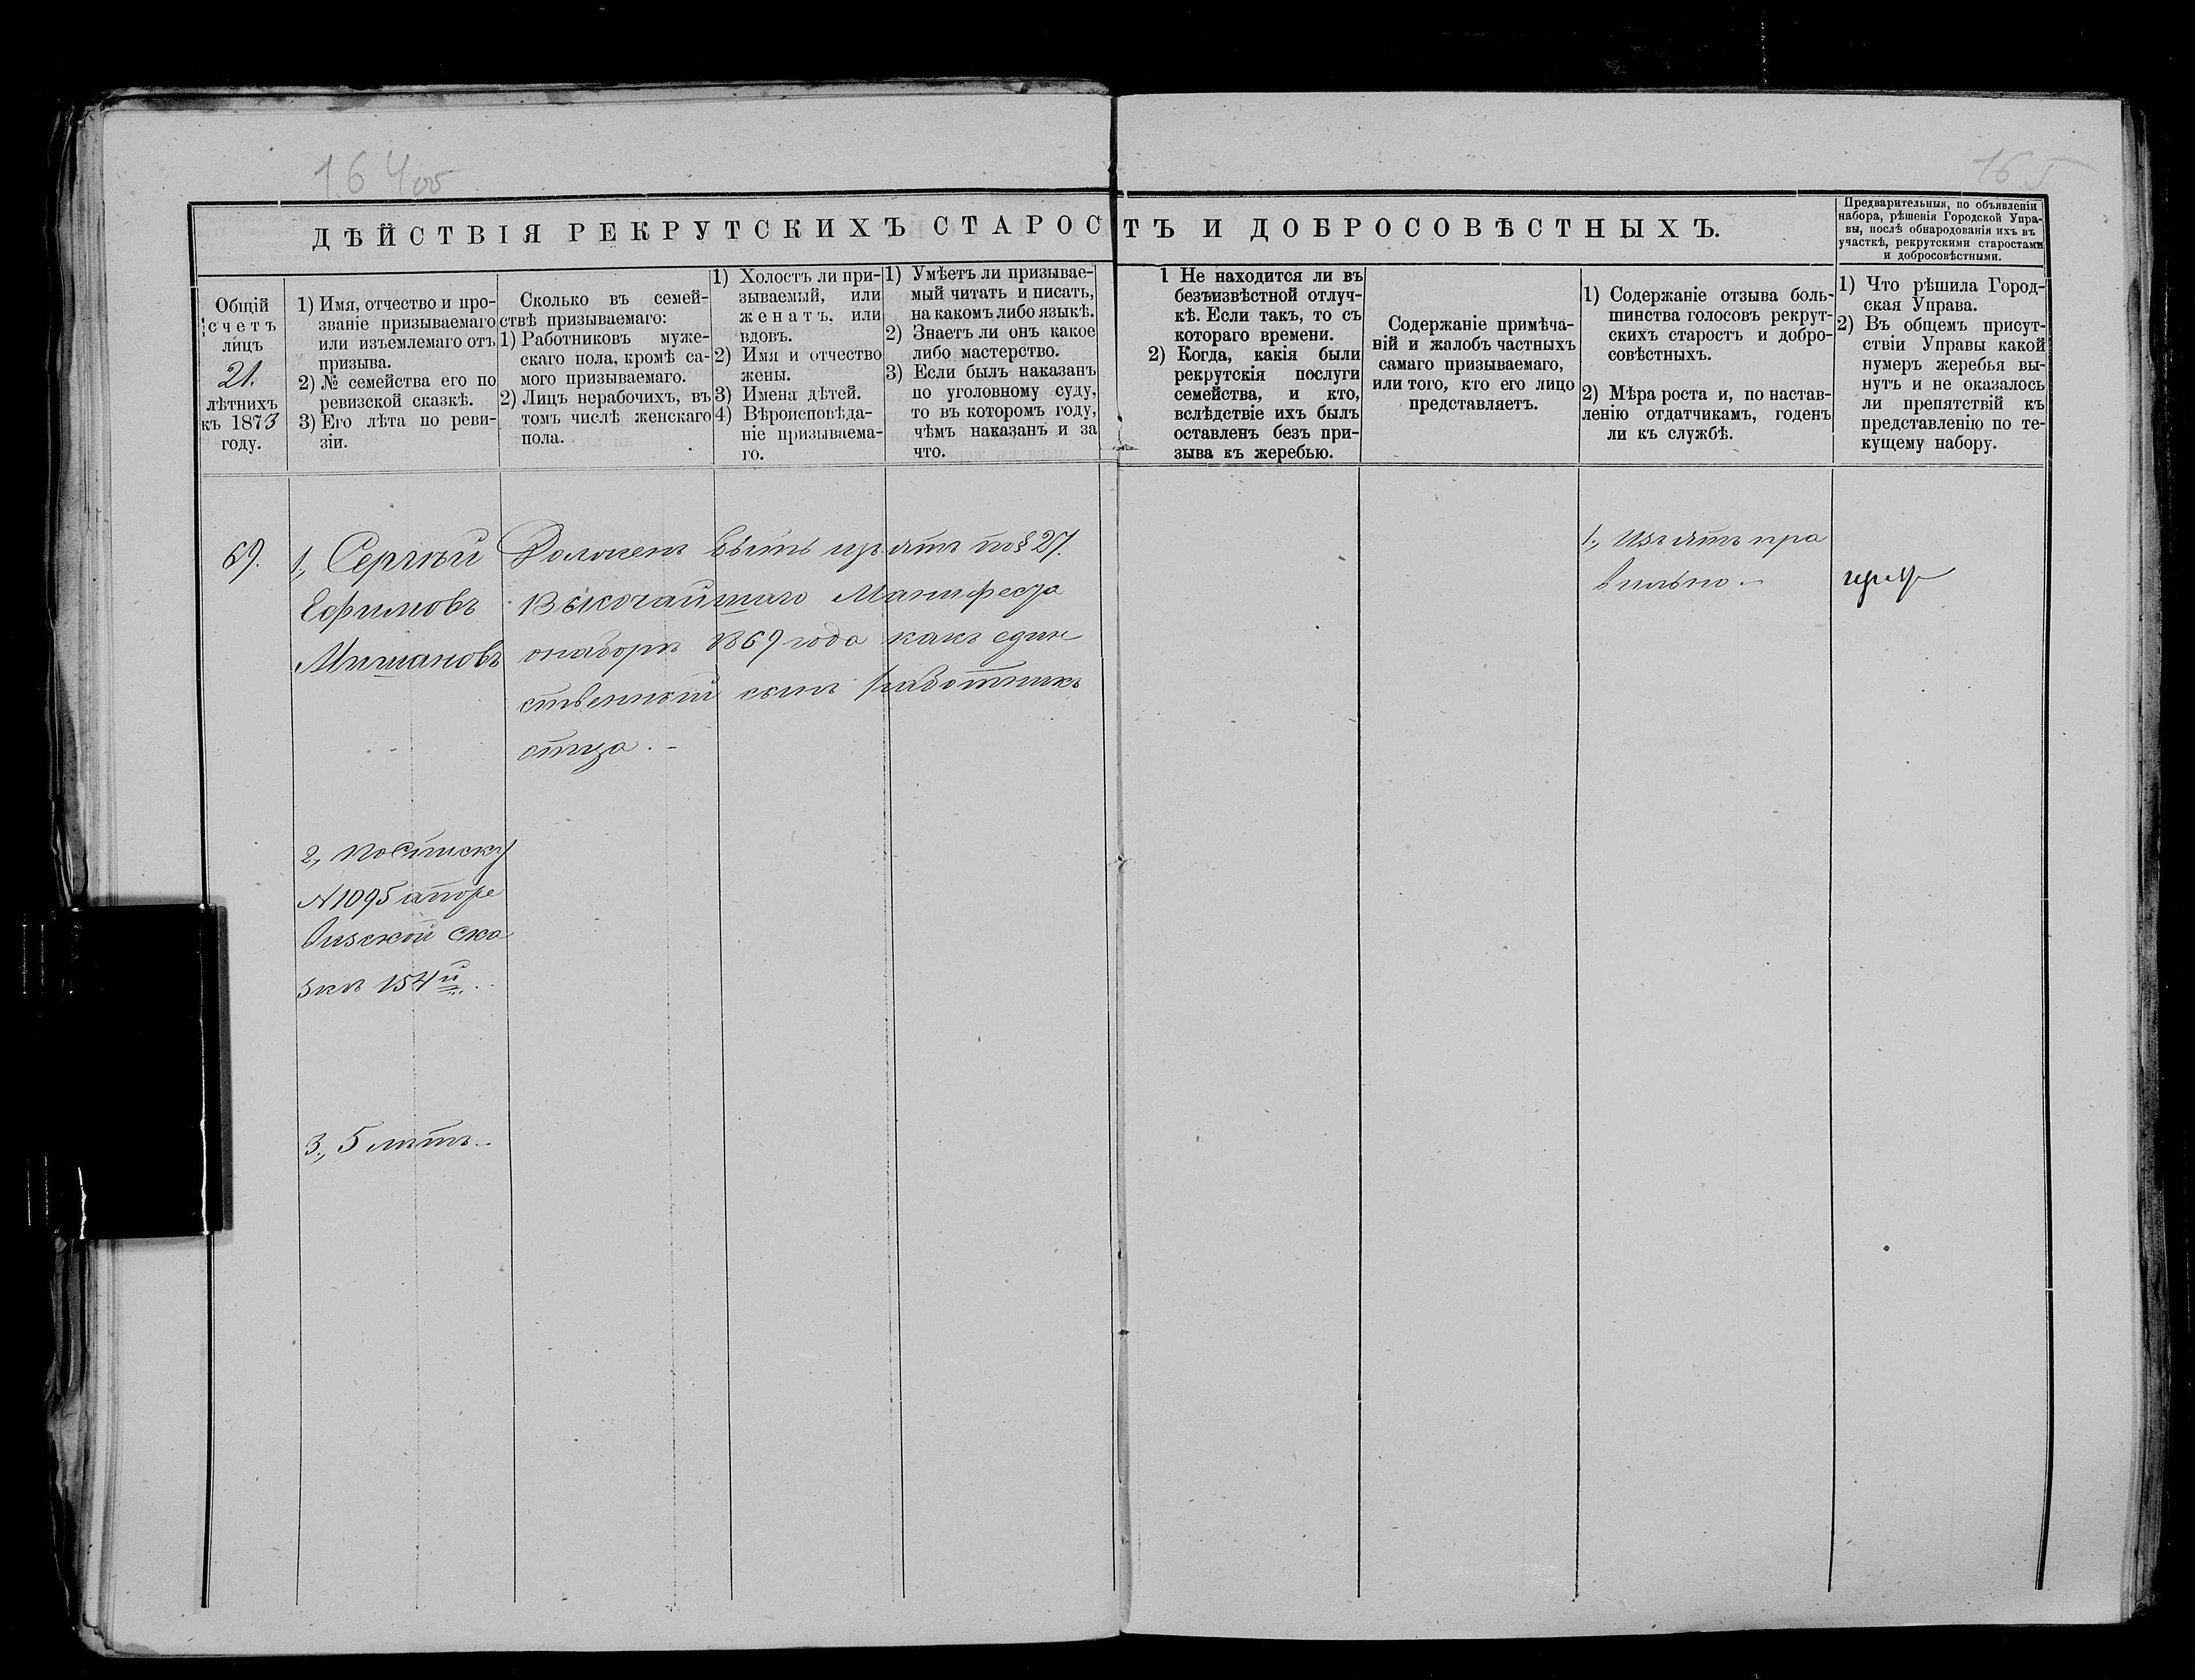 164об
165
ДѢЙСТВІЯ РЕКРУТСКИХЪ СТАРОСТЪ И ДОБРОСОВѢСТНЫХЪ.
Предварительныя, по объявленіи
набора, рѣшенія Городской Упра-
вы, послѣ обнародованія ихъ въ
участкѣ, рекрутскими старостами
и добросовѣстными.
Общій
счетъ
лицъ
21.
лѣтнихъ
къ 1873
году.
1) Имя, отчество и про-
званіе призываемаго
или изъемлемаго отъ
призыва.
2) № семейства его по
ревизской сказкѣ.
3) Его лѣта по реви-
зіи.
Сколько въ семей-
ствѣ призываемаго:
1) Работниковъ муже-
скаго пола, кромѣ са-
мого призываемаго.
2) Лицъ нерабочихъ, въ
томъ числѣ женскаго
пола.
1) Холостъ ли при-
зываемый, или
женатъ, или
вдовъ.
2) Имя и отчество
жены.
3) Имена дѣтей.
4) Вѣроисповѣда-
ніе призываема-
го.
1) Умѣетъ ли призывае-
мый читать и писать,
на какомъ либо языкѣ.
2) Знаетъ ли онъ какое
либо мастерство.
3) Если былъ наказанъ
по уголовному суду,
то въ которомъ году,
чѣмъ наказанъ и за
что.
1 Не находится ли въ
безъизвѣстной отлуч-
кѣ. Если такъ, то съ
котораго времени.
2) Когда, какія были
рекрутскія послуги
семейства, и кто,
вслѣдствіе ихъ былъ
оставленъ безъ при-
зыва къ жеребью.
Содержаніе примѣча-
ній и жалобъ частныхъ
самаго призываемаго,
или того, кто его лицо
представляетъ.
1) Содержаніе отзыва боль-
шинства голосовъ рекрут-
скихъ старостъ и добро-
совѣстныхъ.
2) Мѣра роста и, по настав-
ленію отдатчикамъ, годенъ
ли къ службѣ.
1) Что рѣшила Город-
ская Управа.
2) Въ общемъ присут-
ствіи Управы какой
нумеръ жеребья вы-
нутъ и не оказалось
ли препятствій къ
представленію по те-
кущему набору.
69.
1, Сергѣй
Ефимовъ
Мишановъ
2, По списку
N 1095 а по ре
визской ска
зкѣ 154й
3, 5 лѣтъ
Долженъ быть изъятъ по § 27.
Высочайшаго Манифеста
о наборѣ 1869 года какъ един
ственный сынъ работникъ
отца.
1, Изъятъ пра
вильно